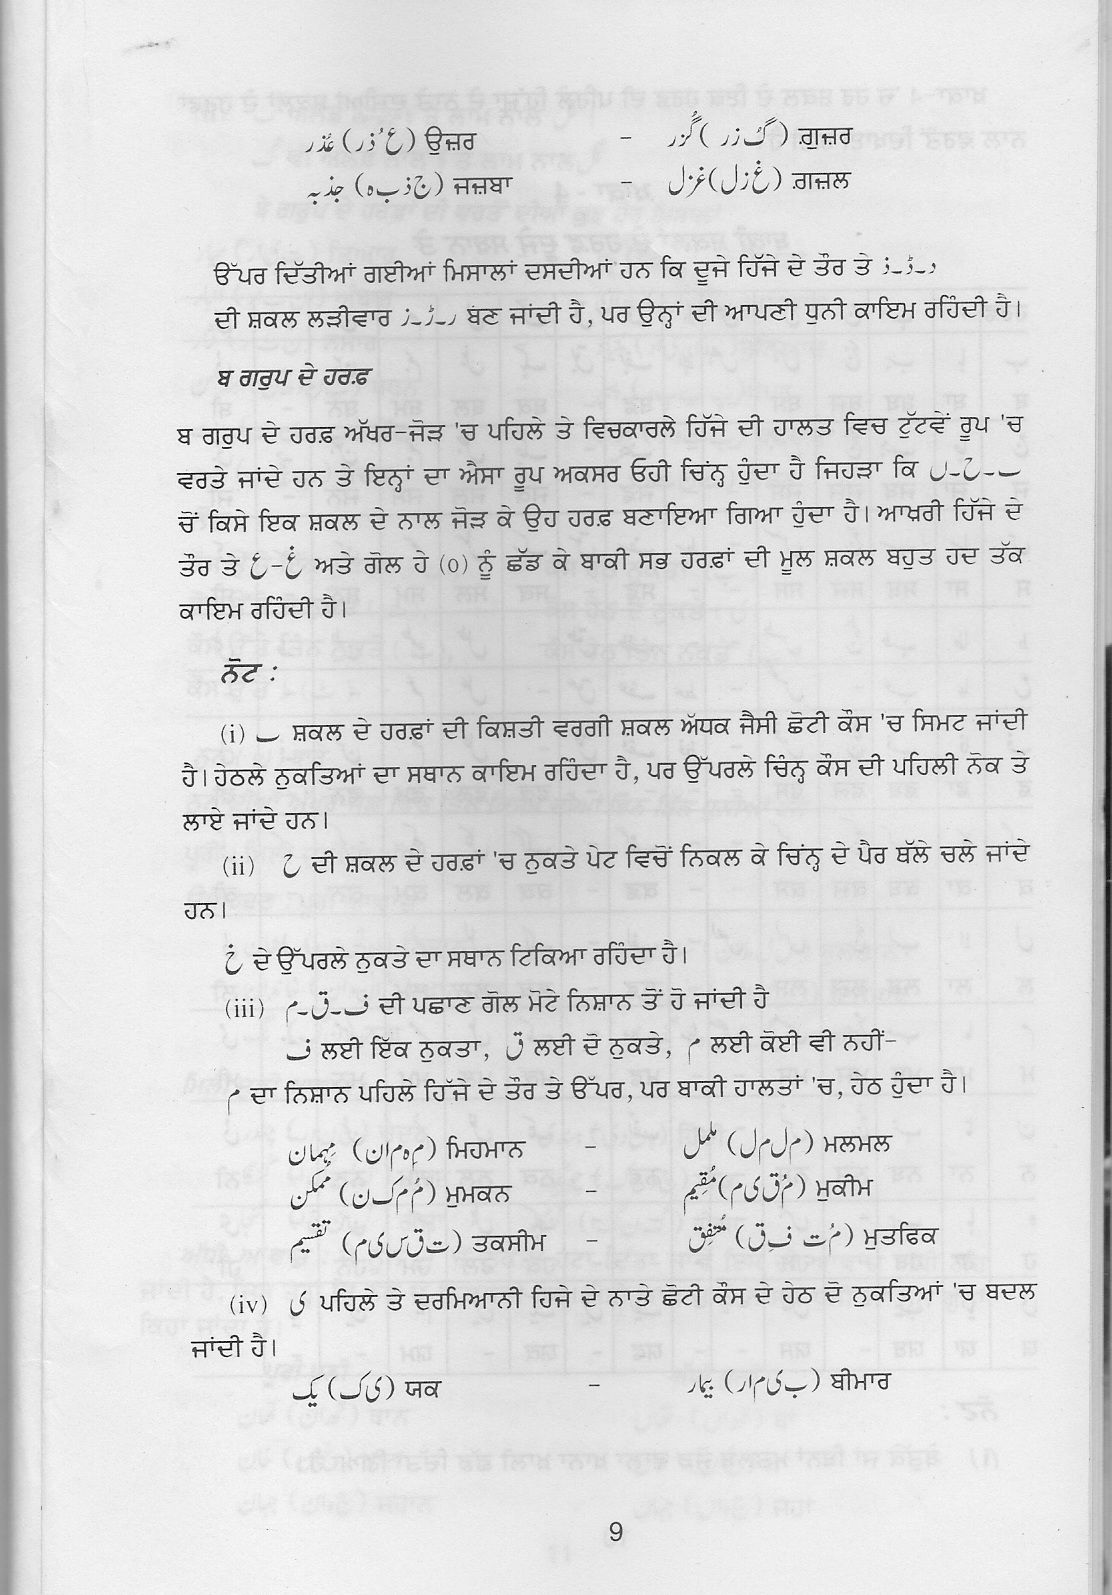 عُذر (ع ُ ذر) ਉਜ਼ਰ – گُزر (گ ُ زر) ਗੁਜ਼ਰ
جذبہ (ج ذ ب ہ) ਜਜ਼ਬਾ – غزل (غ ز ل) ਗ਼ਜ਼ਲ
ਉੱਪਰ ਦਿੱਤੀਆਂ ਗਈਆਂ ਮਿਸਾਲਾਂ ਦਸਦੀਆਂ ਹਨ ਕਿ ਦੂਜੇ ਹਿੱਜੇ ਦੇ ਤੌਰ ਤੇ ر-ڑ-ز
ਦੀ ਸ਼ਕਲ ਲੜੀਵਾਰ ر-ڑ-ز ਬਣ ਜਾਂਦੀ ਹੈ, ਪਰ ਉਨ੍ਹਾਂ ਦੀ ਆਪਣੀ ਧੁਨੀ ਕਾਇਮ ਰਹਿੰਦੀ ਹੈ।
ਬ ਗਰੁਪ ਦੇ ਹਰਫ਼
ਬ ਗਰੁਪ ਦੇ ਹਰਫ਼ ਅੱਖਰ-ਜੋੜ 'ਚ ਪਹਿਲੇ ਤੇ ਵਿਚਕਾਰਲੇ ਹਿੱਜੇ ਦੀ ਹਾਲਤ ਵਿਚ ਟੁੱਟਵੇਂ ਰੂਪ 'ਚ
ਵਰਤੇ ਜਾਂਦੇ ਹਨ ਤੇ ਇਨ੍ਹਾਂ ਦਾ ਐਸਾ ਰੂਪ ਅਕਸਰ ਓਹੀ ਚਿੰਨ੍ਹ ਹੁੰਦਾ ਹੈ ਜਿਹੜਾ ਕਿ
ਚੋਂ ਕਿਸੇ ਇਕ ਸ਼ਕਲ ਦੇ ਨਾਲ ਜੋੜ ਕੇ ਉਹ ਹਰਫ਼ ਬਣਾਇਆ ਗਿਆ ਹੁੰਦਾ ਹੈ। ਆਖ਼ਰੀ ਹਿੱਜੇ ਦੇ
ਤੌਰ ਤੇ ع-غ ਅਤੇ ਗੋਲ ਹੇ (o) ਨੂੰ ਛੱਡ ਕੇ ਬਾਕੀ ਸਭ ਹਰਫ਼ਾਂ ਦੀ ਮੂਲ ਸ਼ਕਲ ਬਹੁਤ ਹਦ ਤੱਕ
ਕਾਇਮ ਰਹਿੰਦੀ ਹੈ।
ਨੋਟ :
(i) ਸ਼ਕਲ ਦੇ ਹਰਫ਼ਾਂ ਦੀ ਕਿਸ਼ਤੀ ਵਰਗੀ ਸ਼ਕਲ ਅੱਧਕ ਜੈਸੀ ਛੋਟੀ ਕੌਸ 'ਚ ਸਿਮਟ ਜਾਂਦੀ
ਹੈ। ਹੇਠਲੇ ਨੁਕਤਿਆਂ ਦਾ ਸਥਾਨ ਕਾਇਮ ਰਹਿੰਦਾ ਹੈ, ਪਰ ਉੱਪਰਲੇ ਚਿੰਨ੍ਹ ਕੌਸ ਦੀ ਪਹਿਲੀ ਨੋਕ ਤੇ
ਲਾਏ ਜਾਂਦੇ ਹਨ।
(ii) ح ਦੀ ਸ਼ਕਲ ਦੇ ਹਰਫ਼ਾਂ 'ਚ ਨੁਕਤੇ ਪੇਟ ਵਿਚੋਂ ਨਿਕਲ ਕੇ ਚਿੰਨ੍ਹ ਦੇ ਪੈਰ ਥੱਲੇ ਚਲੇ ਜਾਂਦੇ
ਹਨ।
خ ਦੇ ਉੱਪਰਲੇ ਨੁਕਤੇ ਦਾ ਸਥਾਨ ਟਿਕਿਆ ਰਹਿੰਦਾ ਹੈ।
(iii) ف-ق-م ਦੀ ਪਛਾਣ ਗੋਲ ਮੋਟੇ ਨਿਸ਼ਾਨ ਤੋਂ ਹੋ ਜਾਂਦੀ ਹੈ
ف ਲਈ ਇੱਕ ਨੁਕਤਾ, ق ਲਈ ਦੋ ਨੁਕਤੇ, م ਲਈ ਕੋਈ ਵੀ ਨਹੀਂ-
م ਦਾ ਨਿਸ਼ਾਨ ਪਹਿਲੇ ਹਿੱਜੇ ਦੇ ਤੌਰ ਤੇ ਉੱਪਰ, ਪਰ ਬਾਕੀ ਹਾਲਤਾਂ 'ਚ, ਹੇਠ ਹੁੰਦਾ ਹੈ।
مِہمان (مِ ہ م ا ن) ਮਿਹਮਾਨ – ململ (م ل م ل) ਮਲਮਲ
مُمکن (مُ م ک ن) ਮੁਮਕਨ – مُقیم (مُ ق ی م) ਮੁਕੀਮ
تقسیم (ت ق س ی م) ਤਕਸੀਮ – مُتفِق (مُ ت فِ ق) ਮੁਤਫਿਕ
(iv) ی ਪਹਿਲੇ ਤੇ ਦਰਮਿਆਨੀ ਹਿਜੇ ਦੇ ਨਾਤੇ ਛੋਟੀ ਕੌਸ ਦੇ ਹੇਠ ਦੋ ਨੁਕਤਿਆਂ 'ਚ ਬਦਲ
ਜਾਂਦੀ ਹੈ।
یک (ی ک) ਯਕ – بیمار (ب ی م ا ر) ਬੀਮਾਰ
9